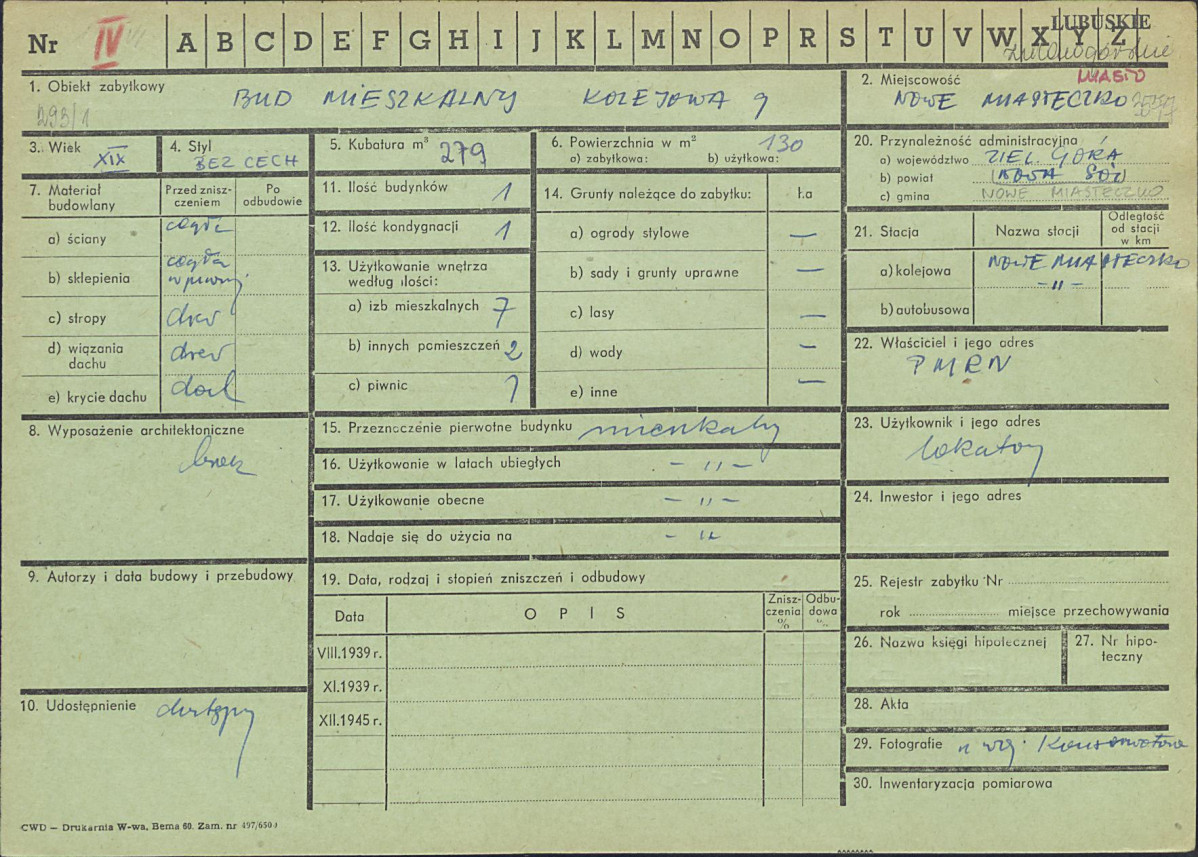 LUBUSKIE
Nr IV A B C D E F G H I J K L M N O P R S T U V W X Y Z
zielonogórskie
1. Obiekt zabytkowy
BUD MIESZKALNY KOLEJOWA 9
293/1
2. Miejscowość MIASTO
NOWE MIASTECZKO
3. Wiek
XIX
4. Styl
BEZ CECH
5. Kubatura m³ 279
6. Powierzchnia w m² 130
a) zabytkowa: b) użytkowa:
20. Przynależność administracyjna
a) województwo ZIEL. GÓRA
b) powiat NOWA SÓL
c) gmina NOWE MIASTECZKO
7. Materiał budowlany
Przed zniszczeniem
Po odbudowie
a) ściany cegła
b) sklepienia cegła w piwnicy
c) stropy drew
d) wiązania dachu drew
e) krycie dachu dach
11. Ilość budynków 1
12. Ilość kondygnacji 1
13. Użytkowanie wnętrza
według ilości:
a) izb mieszkalnych 7
b) innych pomieszczeń 2
c) piwnic 1
14. Grunty należące do zabytku: ha
a) ogrody stylowe —
b) sady i grunty uprawne —
c) lasy —
d) wody —
e) inne —
21. Stacja
Nazwa stacji
Odległość
od stacji
w km
a) kolejowa NOWE MIASTECZKO
b) autobusowa -"-
22. Właściciel i jego adres
PMRN
8. Wyposażenie architektoniczne
brak
15. Przeznaczenie pierwotne budynku mieszkalny
16. Użytkowanie w latach ubiegłych - " -
17. Użytkowanie obecne - " -
18. Nadaje się do użycia na - "
23. Użytkownik i jego adres
lokatorzy
24. Inwestor i jego adres
9. Autorzy i data budowy i przebudowy
19. Data, rodzaj i stopień zniszczeń i odbudowy
Data OPIS
Zniszczenia
%
Odbudowa
%
VIII.1939 r.
XI.1939 r.
XII.1945 r.
25. Rejestr zabytku Nr
rok miejsce przechowywania
26. Nazwa księgi hipotecznej
27. Nr hipoteczny
10. Udostępnienie dostępny
28. Akta
29. Fotografie u woj. Konserwatora
30. Inwentaryzacja pomiarowa
CWD — Drukarnia W-wa, Bema 60. Zam. nr 497/650